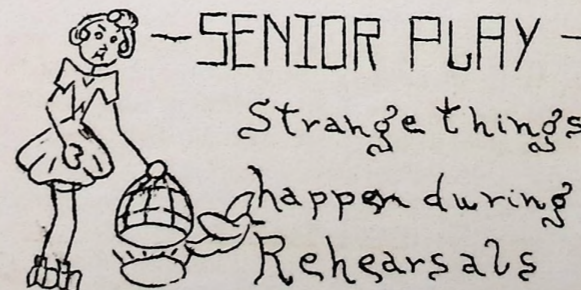 ~SENIOR PLAY-
Strange things
happen during
Rehearsals